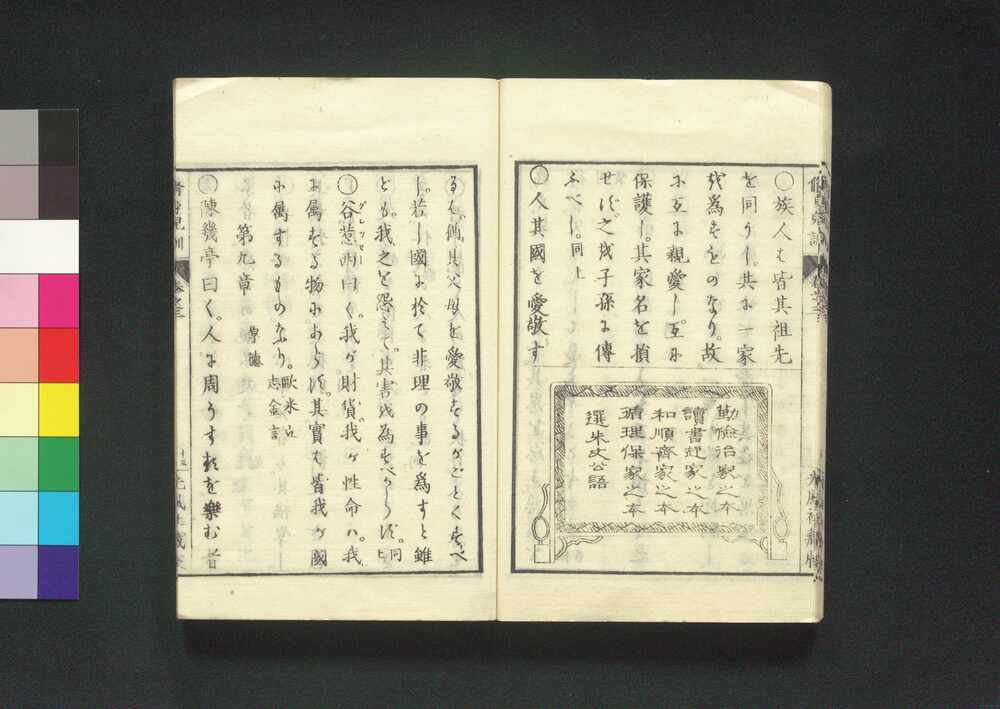 ○族人ハ皆其祖先
を同うし。共に一家
を為すものなり。故
に互に親愛し。互に
保護し。其家名を損
せず。之を子孫に傳
ふべし。同上
○人其國を愛敬す
勤儉治家之本
讀書起家之本
和順齊家之本
循理保家之本
選朱文公語
るを。猶其父母を愛敬するがごとくすべ
し。若し國に於て非理の事を爲すと雖
ども。我之を怨みて。其害を為すべからず。同上
○谷惹西曰く。我ガ財貨。我ガ性命ハ。我
グレツセー
に属する物にあらず。其實ハ皆我ガ國
に属するものなり。歐米立志金言
第九章 厚德
○陳幾亭曰く。人に周うするを樂む者